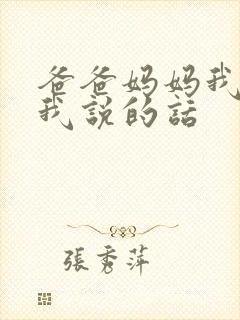 爸爸妈妈我
我說的話
張秀萍